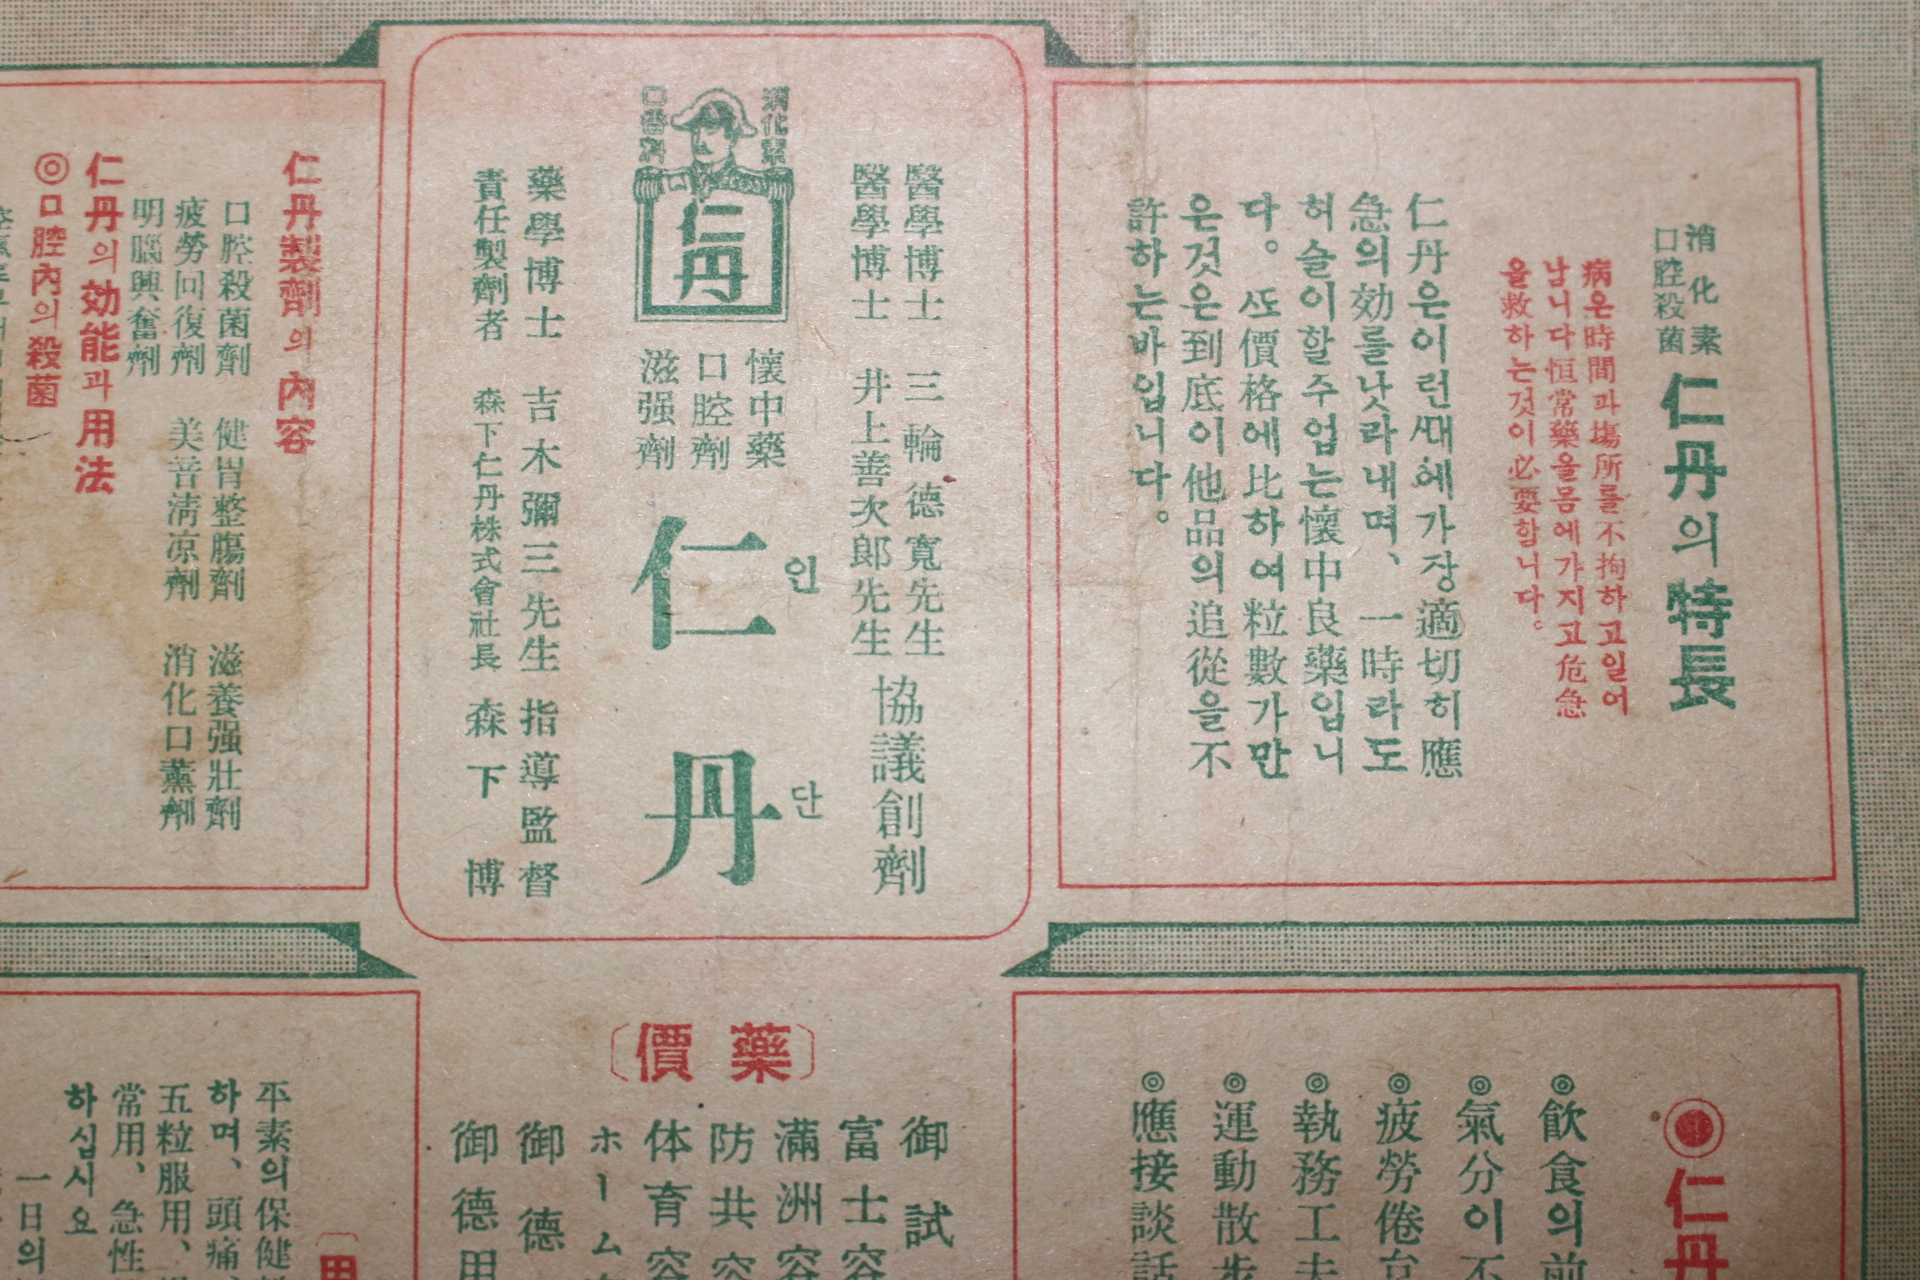 消化素
口腔殺菌
仁丹의特長
病은時間과塲所를不拘하고일어
남니다恒常藥을몸에가지고危急
을救하는것이必要합니다。
仁丹은이런ᄯᅢ에가장適切히應
急의効를낫라내며、一時라도
허술이할수업는懷中良藥입니
다。ᄯᅩ價格에比하여粒數가만
은것은到底이他品의追從을不
許하는바입니다。
醫學博士 三輪德寬先生
醫學博士 井上善次郎先生
協議創劑
消化
口
仁丹
懷中藥
口腔劑
滋强劑
仁丹
인단
藥學博士 吉木彌三先生指導監督
責任製劑者 森下仁丹株式會社長 森下博
仁丹製劑의內容
口腔殺菌劑 健胃整腸劑 滋養强壯劑
疲勞回復劑 美音淸凉劑 消化口薰劑
明腦興奮劑
仁丹의効能과用法
◎口腔內의殺菌
◉仁丹
◎飮食의前
◎氣分이不
◎疲勞倦怠
◎執務工夫
◎運動散步
◎應接談話
〔藥價〕
御試
富士容
滿洲容
防共容
体育容
ホーム
御德
御德用
用
平素의保健
하며、頭痛
五粒服用、
常用、急性
하십시오
一日의